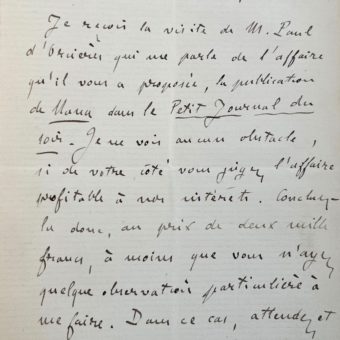 Je reçois la visite de M. Paul
d'Orcières qui me parle de l'affaire
qu'il vous a proposée, la publication
de Nana dans le Petit Journal du
soir. Je ne vois aucun obstacle,
si de votre côté vous jugez l'affaire
profitable à nos intérêts. Concluez-
la donc, au prix de deux mille
francs, à moins que vous n'ayez
quelque observation particulière à
me faire. Dans ce cas, attendez et